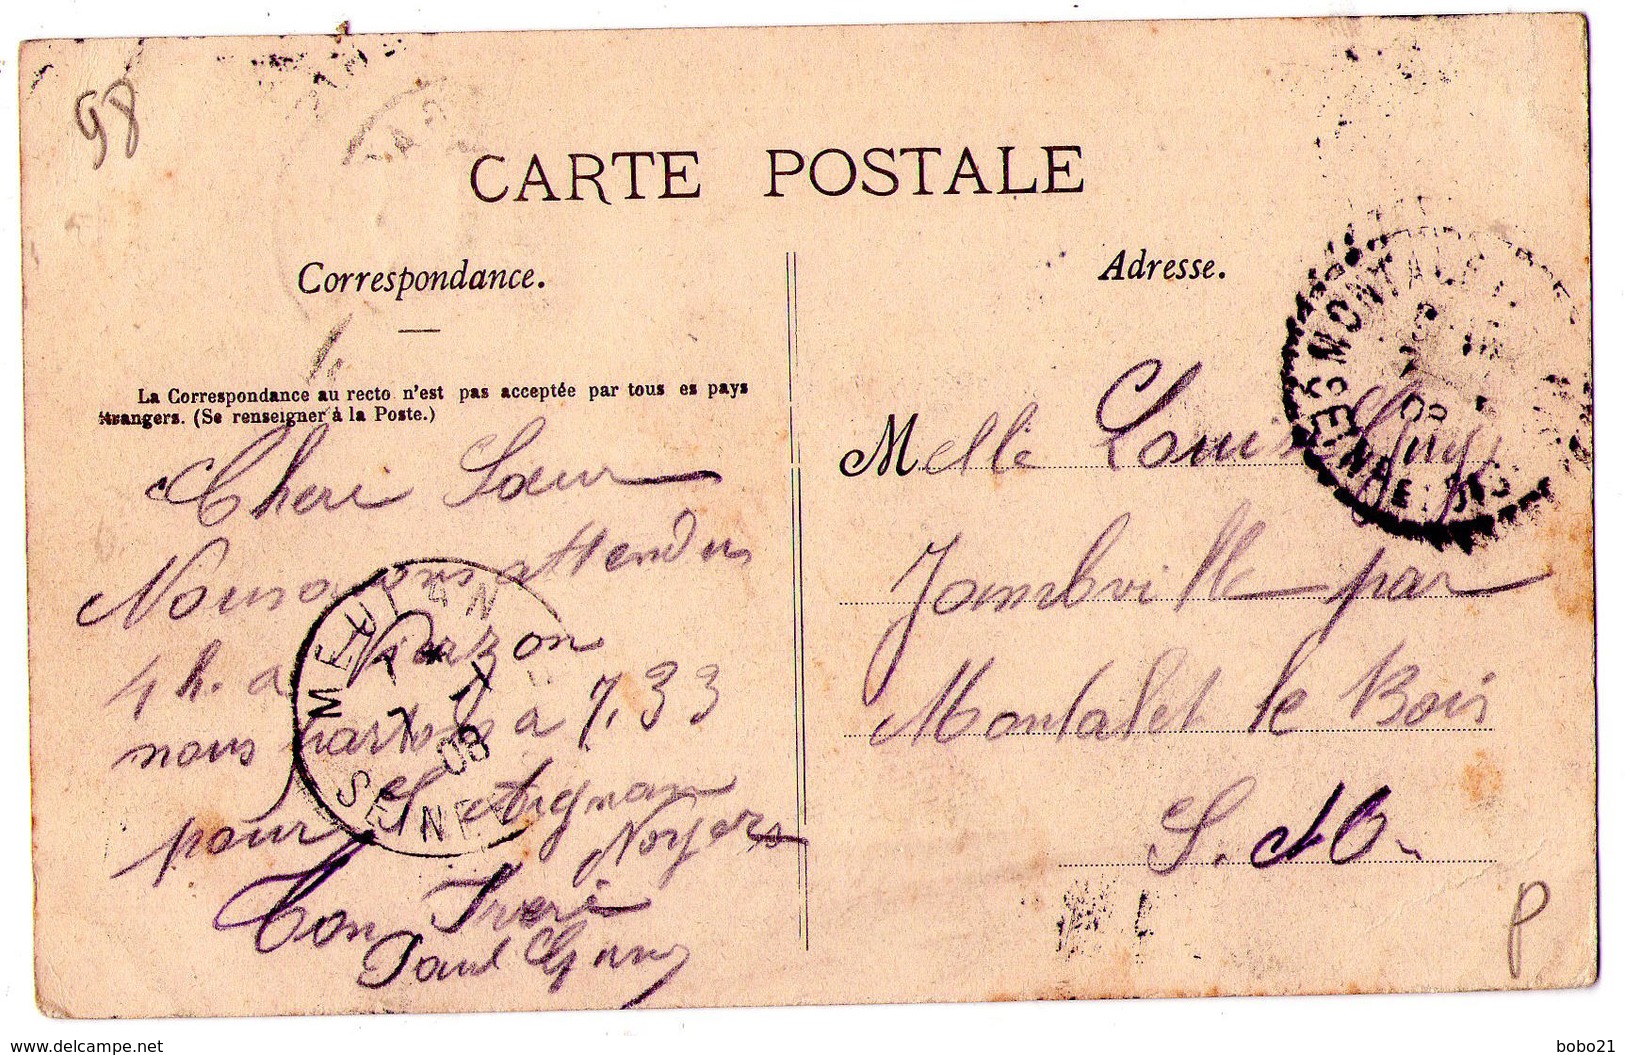 98
CARTE POSTALE
Correspondance.
La Correspondance au recto n'est pas acceptée par tous es pays
étrangers. (Se renseigner à la Poste.)
Chere Sœur
Nous avons attendu
4 h. a Vierzon
nous partons a 7,33
pour St Aignan
Noyers
Ton Frere
Paul
MEULAN
08
SEINE
Adresse.
MONTALET
08
SEINE
Melle Louise
Jambville par
Montalet le Bois
S. et O.
P
www.delcampe.net
bobo21